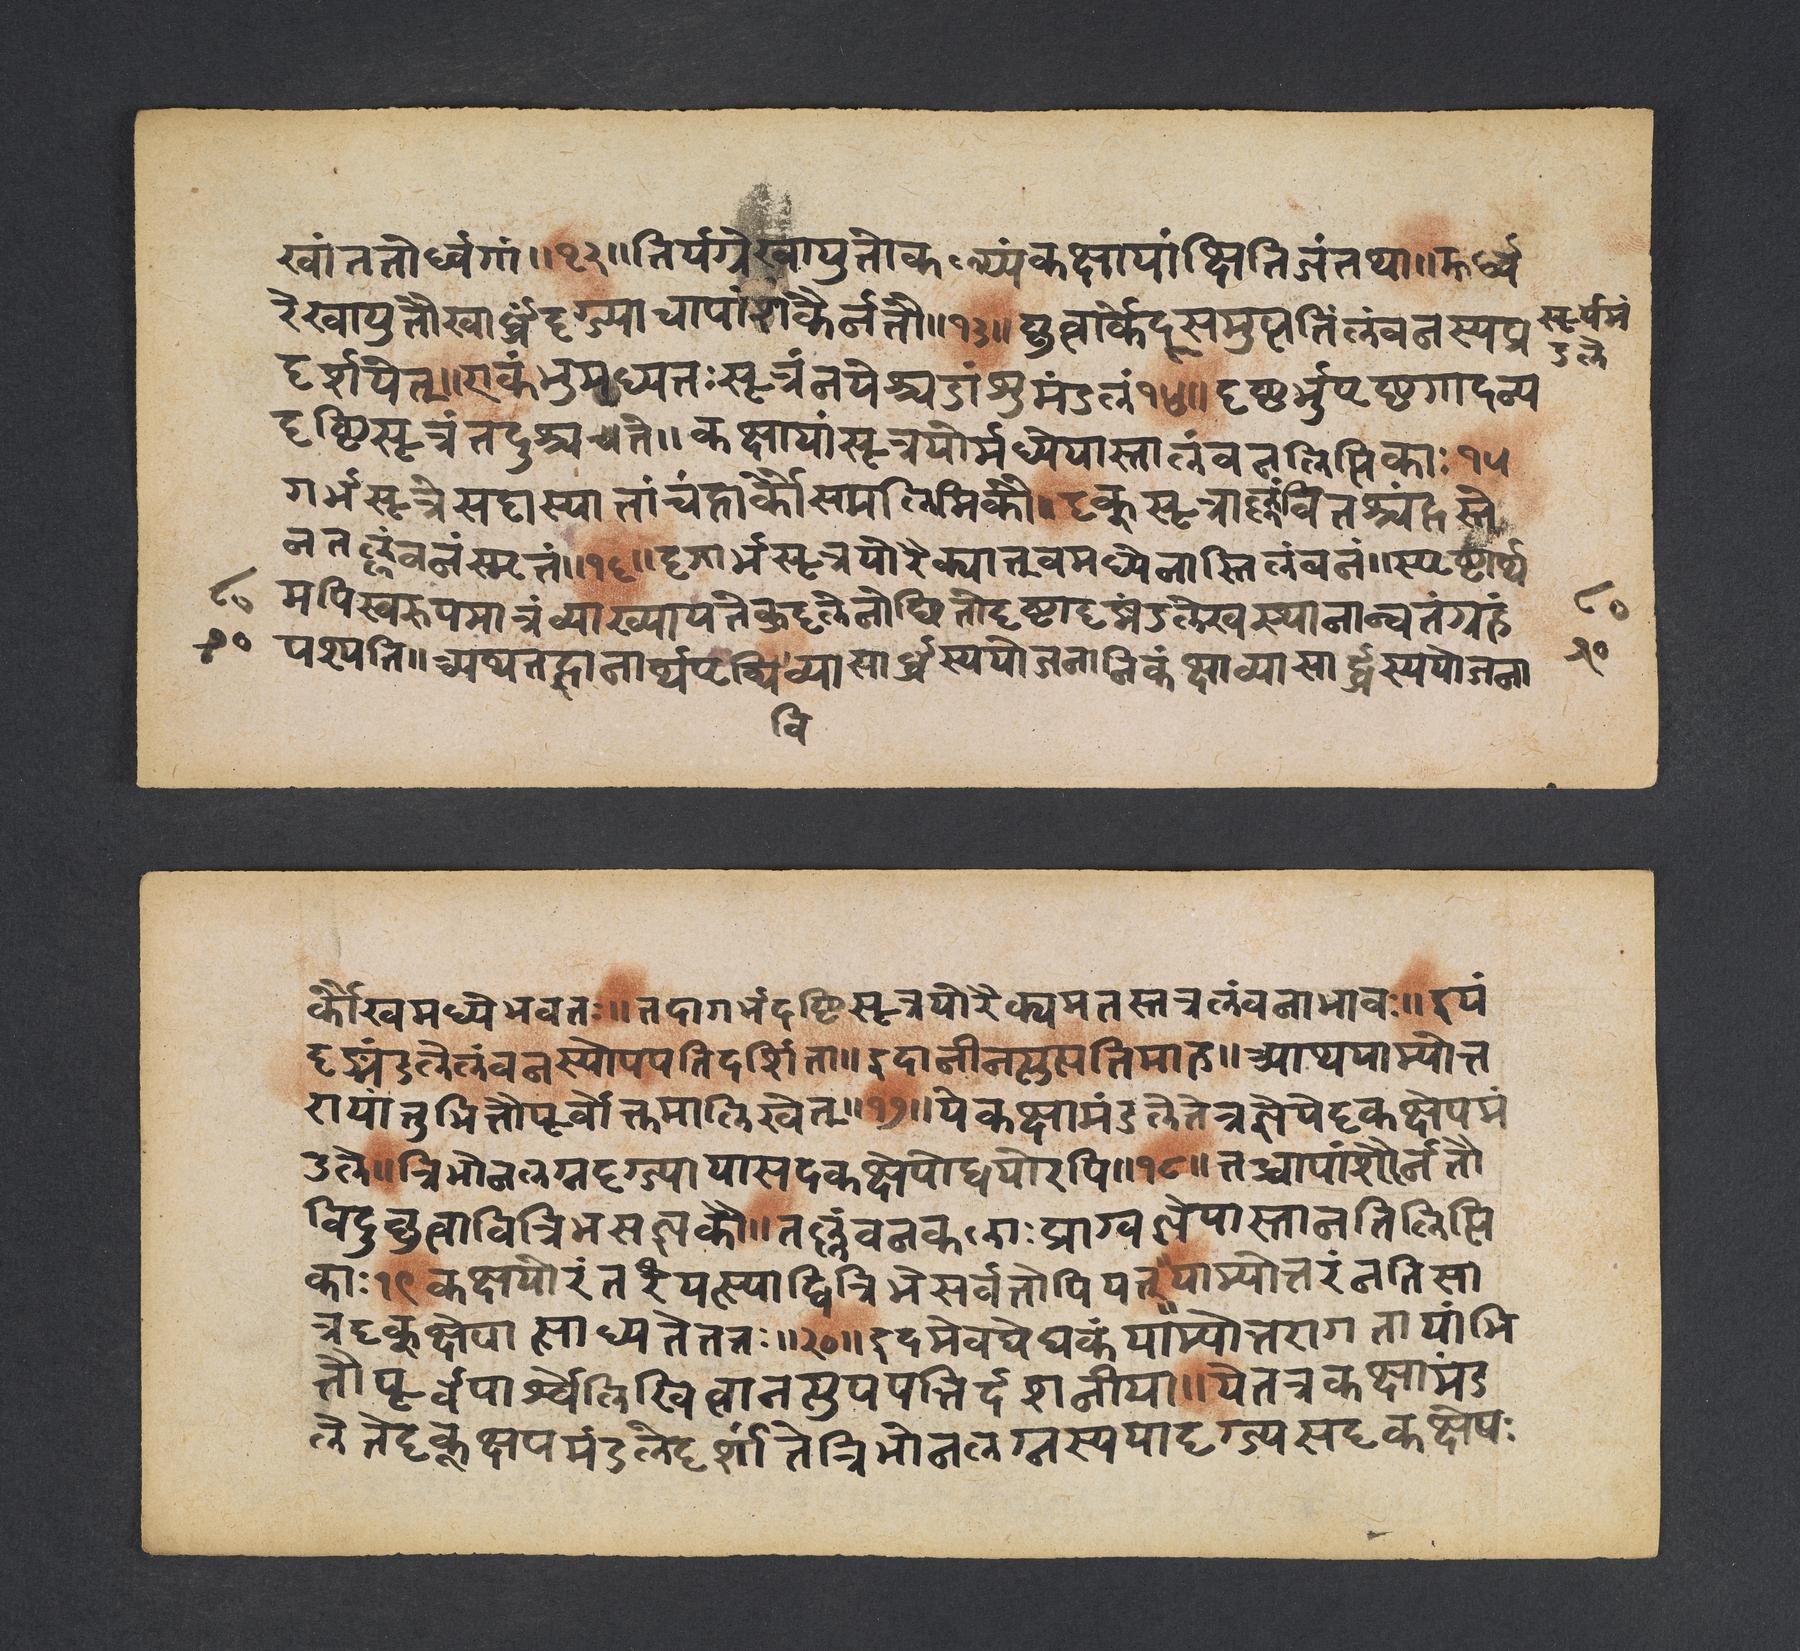 खांततोर्ध्वगां॥१२॥तिर्यग्रेखायुतोकल्प्यंकक्षायांक्षितिजंतथा॥ऊर्ध्व
रेखायुतौखार्ध्वंदृग्ज्याचापांशकैर्नतौ॥१३॥कृत्वार्केंदूसमुत्पतिंलंवनस्यप्र सूर्यमं
दर्शयेत्॥एकंभुमध्यतःसूत्रंनयेच्चंडांशुमंडलं१४॥दृष्टुर्भुपृष्ठगादन्य डले
दृष्टिसूत्रंतदुच्यते॥कक्षायांसूत्रयोर्मध्येयास्तालंवनलिप्तिकाः१५
गर्भसूत्रेसदास्यातांचंद्रार्कौसमलिप्तिकौ॥दृक्सूत्राल्लंवितश्चंद्रस्ते
नतल्लंवनंस्मृतं॥१६॥दृग्गर्भसूत्रयोरैक्यात्खमध्येनास्तिलंवनं॥स्पष्टार्थ
८० मपिस्वरूपमात्रंव्याख्यायतेकुदलेनोच्छ्रितोदृष्टादृङ्मंडलेखस्थानान्नतंग्रहं ८०
२० पश्यति॥अथतद्ज्ञानार्थंपृथिव्यासार्ध्धस्ययोजनानिकंक्षाव्यासार्द्धस्ययोजना २०
वि
र्कौखमध्येभवतः॥तदागर्भदृष्टिसूत्रयोरैक्यमतस्तत्रलंवनाभावः॥इयं
दृङ्मंडलेलंवनस्योपपतिर्दर्शिता॥इदानीनत्युपपत्तिमाह॥अथयाम्योत्त
रायांतुभित्तौपूर्वोक्तमालिखेत्॥१७॥येकक्षामंडलेतेत्रज्ञेयेदृक्क्षेपमं
डले॥त्रिभोनलग्नदृग्ज्यायासदृक्क्षेपोद्वयोरपि॥१८॥तच्चापांशैर्नतौ
विंदुकृत्वावित्रिभसज्ञकौ॥तल्लंवनकलाःप्राग्वज्ञेयास्तानतिलिप्ति
काः१९कक्षयोरंतरंयत्स्याद्वित्रिभेसर्वतोपियत्॥याम्योत्तरंनतिसा
त्रदृक्क्षेपात्साध्यतेततः॥२०॥इदमेवछेद्यकंयाम्योत्तरागतायांभि
त्तौपूर्वपार्श्वेलिखित्वानत्युपपत्तिर्दर्शनीया॥येतत्रकक्षामंड
लेतेदृक्क्षेपमंडलेदर्शांतेत्रिभोनलग्नस्ययादृग्ज्यसदृक्क्षेपः